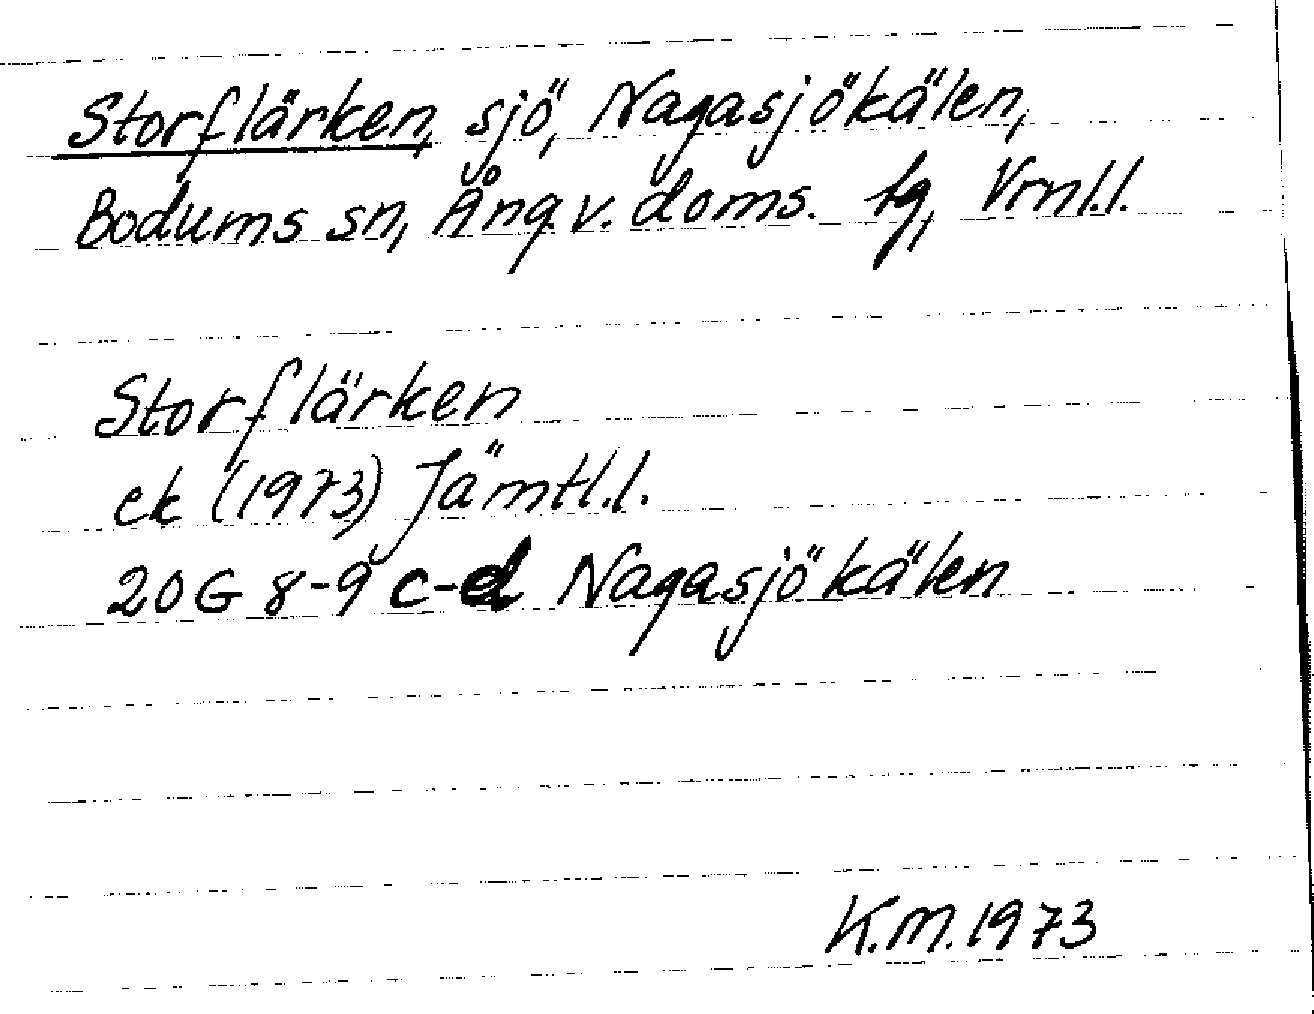 Storflärken, sjö, Nagasjökälen,
Bodums sn, Ång.v. doms. tg, Vrnl.l.
Storflärken
ek (1973) Jämtl.l.
20G 8-9 c-d Nagasjökälen
K.M. 1973